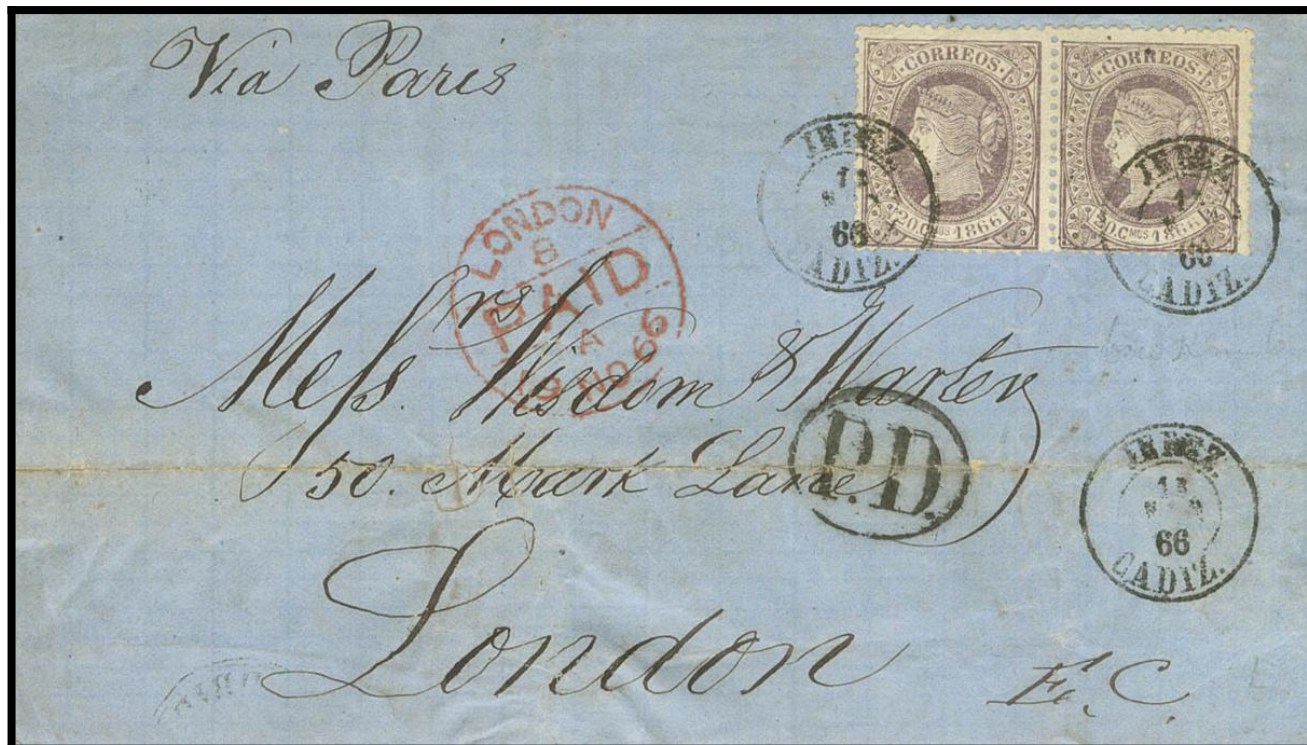 Via Paris
CORREOS
20. CMOS 1866
CORREOS
20. CMOS 1866
JEREZ
66
CADIZ.
JEREZ
66
CADIZ.
LONDON
8
PAID
A
19 NO 66
Messrs. Wisdom & Warter
50. Mark Lane
P.D.
JEREZ
66
CADIZ.
London
E.C.